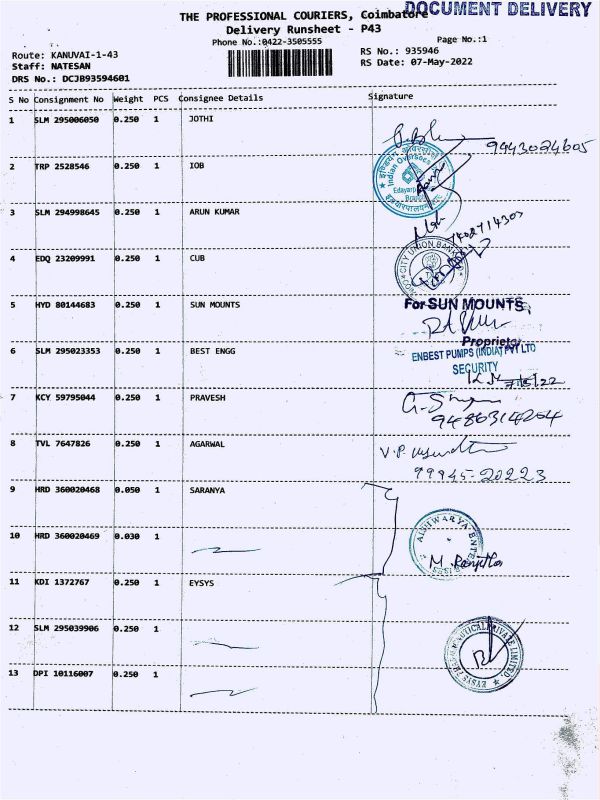 DOCUMENT DELIVERY
THE PROFESSIONAL COURIERS, Coimbatore
Delivery Runsheet - P43
Phone No.:0422-3505555
Page No.:1
Route: KANUVAI-1-43
RS No.: 935946
Staff: NATESAN
RS Date: 07-May-2022
DRS No.: DCJB93594601
S No Consignment No Weight PCS Consignee Details Signature
1 SLM 295006050 0.250 1 JOTHI
9943024605
2 TRP 2528546 0.250 1 IOB
Indian Overseas
3 SLM 294998645 0.250 1 ARUN KUMAR
4 EDQ 23209991 0.250 1 CUB
CITY UNION BANK
5 HYD 80144683 0.250 1 SUN MOUNTS
For SUN MOUNTS,
Proprietor
6 SLM 295023353 0.250 1 BEST ENGG
ENBEST PUMPS (INDIA) PVT LTD
SECURITY
7 KCY 59795044 0.250 1 PRAVESH
9486314264
8 TVL 7647826 0.250 1 AGARWAL
99945-20223
9 HRD 360020468 0.050 1 SARANYA
10 HRD 360020469 0.030 1
AISHWARYA
11 KDI 1372767 0.250 1 EYSYS
12 SLM 295039906 0.250 1
13 DPI 10116007 0.250 1
EYSYS PHARMACEUTICAL PRIVATE LIMITED